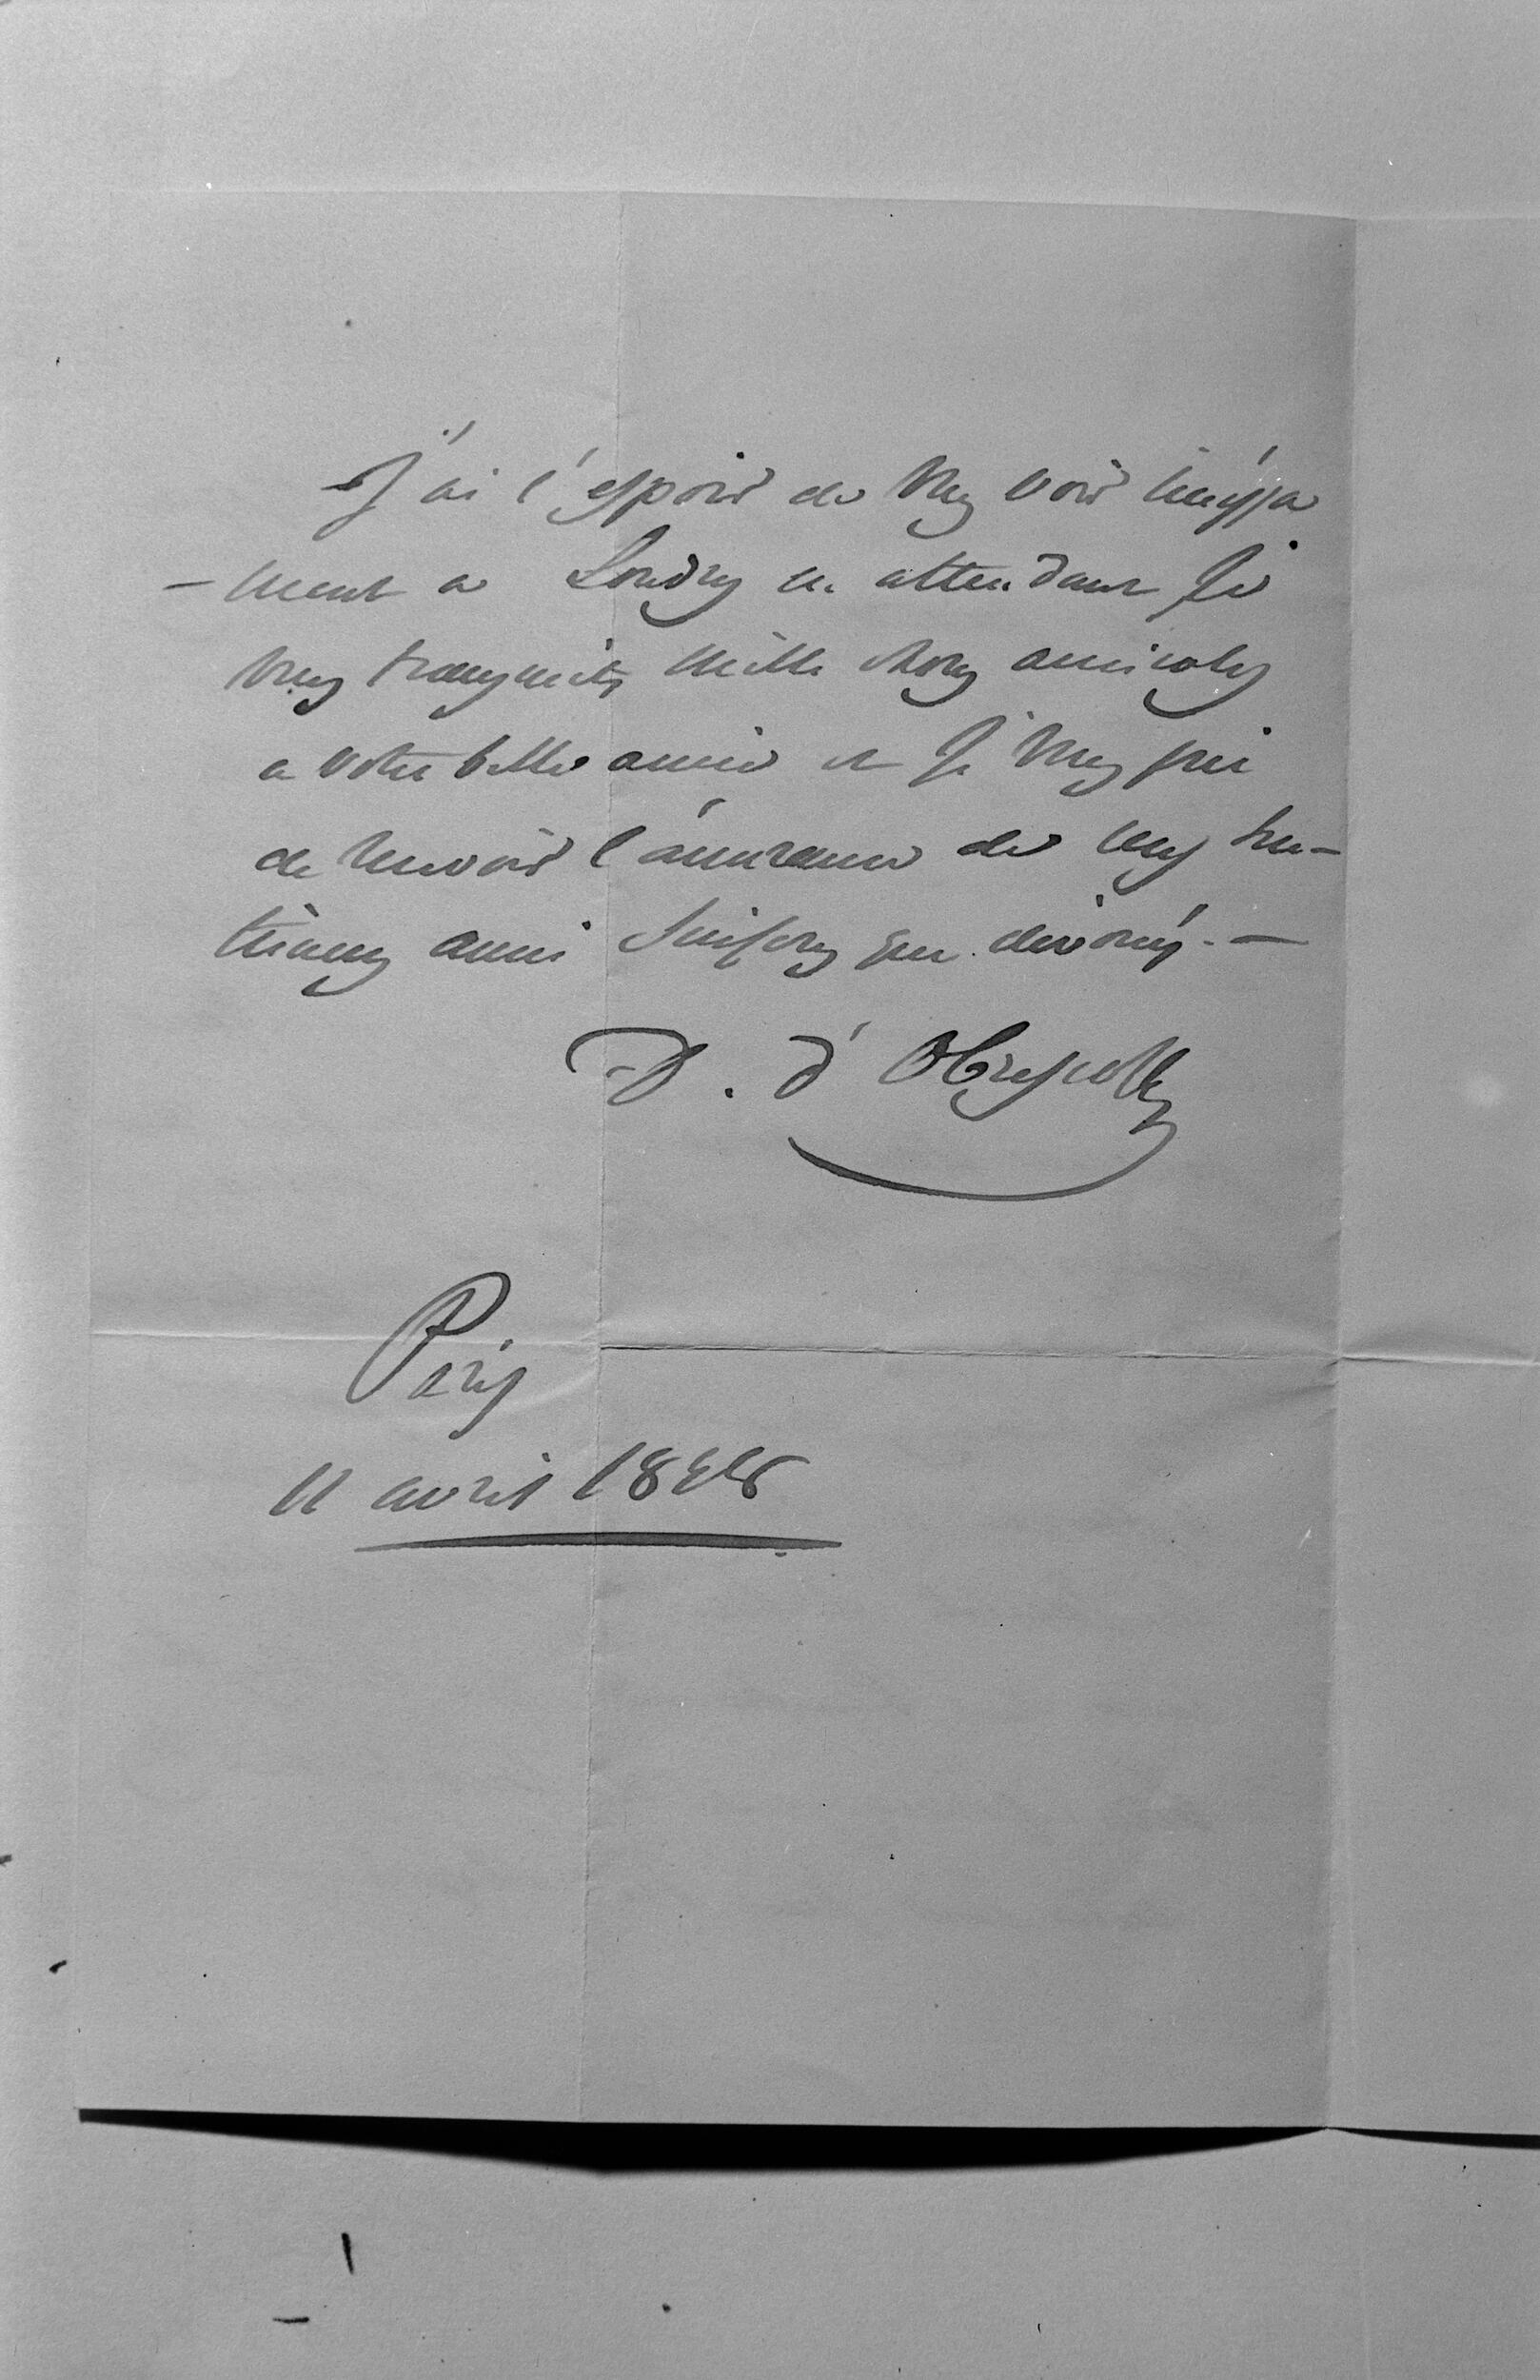 J'ai l'espoir de vous voir incéssa
- ment a Londres en attendant je
vous transmets mille choses amicales
a votre belle amie et je vous prie
de recevoir l'assurance de mes sen-
timens aussi sincères que dévoués. -
D. d'Obrescoff
Paris
11 avril 18